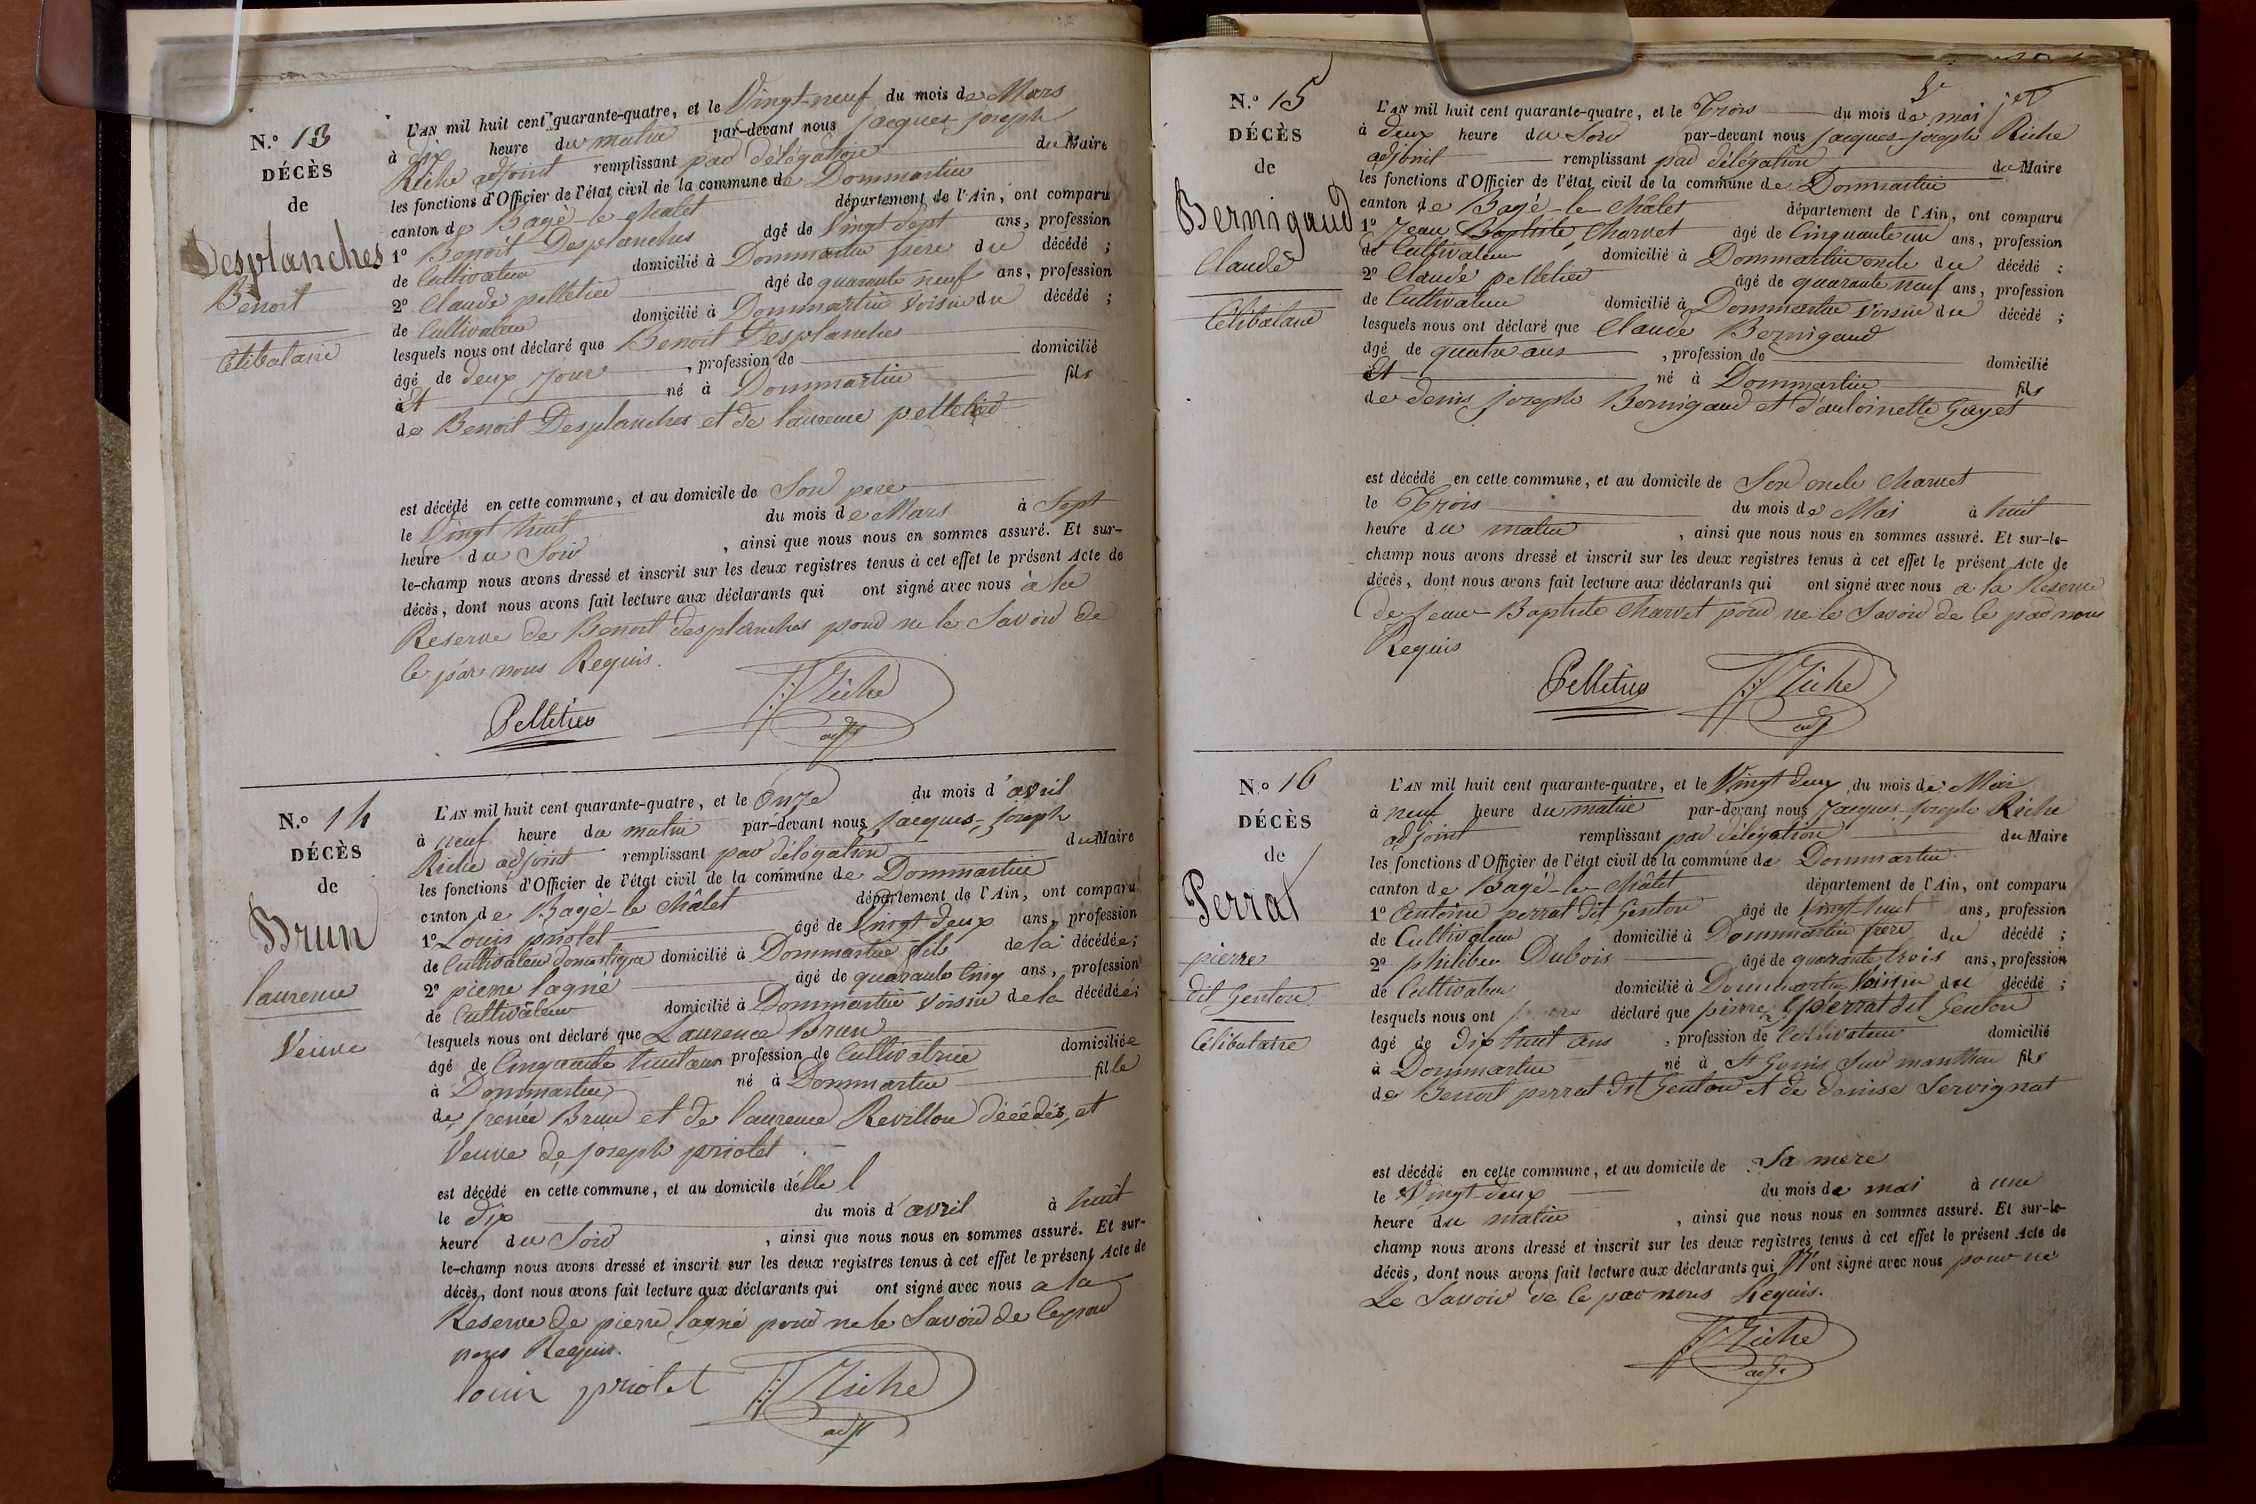 N.o 13
DÉCÈS
de
Desplanches
Benoit
Célibataire
L'AN mil huit cent quarante-quatre, et le Vingt-neuf du mois de Mars
à dix heure du matin par-devant nous Jacques-Joseph
Riche adjoint remplissant par délégation du Maire
les fonctions d'Officier de l'état civil de la commune de Dommartin
canton de Bagé-le-Chalet département de l'Ain, ont comparu
1o Benoit Desplanches âgé de Vingt sept ans, profession
de Cultivateur domicilié à Dommartin pere du décédé ;
2o Claude pelletier âgé de quarante neuf ans, profession
de Cultivateur domicilié à Dommartin Voisin du décédé ;
lesquels nous ont déclaré que Benoit Desplanches
âgé de deux jour , profession de domicilié
à Et né à Dommartin fils
de Benoit Desplanches et de laurence pelletier
est décédé en cette commune, et au domicile de Son pere
le Vingt huit du mois de Mars à Sept
heure du Soir , ainsi que nous nous en sommes assuré. Et sur-
le-champ nous avons dressé et inscrit sur les deux registres tenus à cet effet le présent Acte de
décès, dont nous avons fait lecture aux déclarants qui ont signé avec nous à la
Reserve de Benoit desplanches pour ne le Savoir de
ce par nous Requis.
Pelletier JJ Riche
adj
N.o 14
DÉCÈS
de
Brun
laurence
Veuve
L'AN mil huit cent quarante-quatre, et le Onze du mois d'avril
à neuf heure du matin par-devant nous Jacques-Joseph
Riche adjoint remplissant par délégation du Maire
les fonctions d'Officier de l'état civil de la commune de Dommartin
canton de Bagé-le-Châlet département de l'Ain, ont comparu
1o Louis priolet âgé de Vingt deux ans, profession
de Cultivateur domestique domicilié à Dommartin fils de la décédée ;
2o pierre lagné âgé de quarante Cinq ans, profession
de Cultivateur domicilié à Dommartin Voisin de la décédée ;
lesquels nous ont déclaré que Laurence Brun
âgé de Cinquante huit ans profession de Cultivatrice domiciliée
à Dommartin né à Dommartin fille
de frenée Brun et de laurence Revillon décédés, et
Veuve de joseph priolet
est décédé en cette commune, et au domicile d'elle
le dix du mois d'avril à huit
heure du Soir , ainsi que nous nous en sommes assuré. Et sur-
le-champ nous avons dressé et inscrit sur les deux registres tenus à cet effet le présent Acte de
décès, dont nous avons fait lecture aux déclarants qui ont signé avec nous a la
Reserve de pierre lagné pour ne le Savoir de ce par
nous Requis.
louis priolet JJ Riche
adj
N.o 15
DÉCÈS
de
Bernigaud
Claude
Célibataire
L'AN mil huit cent quarante-quatre, et le Trois du mois de mai
à deux heure du Soir par-devant nous Jacques-Joseph Riche
adjoint remplissant par délégation du Maire
les fonctions d'Officier de l'état civil de la commune de Dommartin
canton de Bagé-le-Châlet département de l'Ain, ont comparu
1o Jean Baptiste Charvet âgé de Cinquante un ans, profession
de Cultivateur domicilié à Dommartin oncle du décédé ;
2o Claude pelletier âgé de quarante neuf ans, profession
de Cultivateur domicilié à Dommartin Voisin du décédé ;
lesquels nous ont déclaré que Claude Bernigaud
âgé de quatre ans , profession de domicilié
à Et né à Dommartin fils
de denis joseph Bernigaud et d'antoinette Guyet
est décédé en cette commune, et au domicile de Son oncle Charvet
le Trois du mois de Mai à huit
heure du matin , ainsi que nous nous en sommes assuré. Et sur-le-
champ nous avons dressé et inscrit sur les deux registres tenus à cet effet le présent Acte de
décès, dont nous avons fait lecture aux déclarants qui ont signé avec nous a la Reserve
de Jean-Baptiste Charvet pour ne le Savoir de ce par nous
Requis
Pelletier JJ Riche
adj
N.o 16
DÉCÈS
de
Perrat
pierre
dit Genton
Célibataire
L'AN mil huit cent quarante-quatre, et le Vingt deux du mois de Mai
à neuf heure du matin par-devant nous Jacques-Joseph Riche
adjoint remplissant par délégation du Maire
les fonctions d'Officier de l'état civil de la commune de Dommartin
canton de Bagé-le-Châtet département de l'Ain, ont comparu
1o Antoine perrat dit Genton âgé de Vingt-huit ans, profession
de Cultivateur domicilié à Dommartin frere du décédé ;
2o philiber Dubois âgé de quarante trois ans, profession
de Cultivateur domicilié à Dommartin Voisin du décédé ;
lesquels nous ont déclaré que pierre perrat dit Genton
âgé de dix huit ans , profession de Cultivateur domicilié
à Dommartin né à St Genis Sur manthon fils
de Benoit perrat dit Genton et de denise Servignat
est décédé en cette commune, et au domicile de Sa mere
le Vingt-deux du mois de mai à une
heure du matin , ainsi que nous nous en sommes assuré. Et sur-le-
champ nous avons dressé et inscrit sur les deux registres tenus à cet effet le présent Acte de
décès, dont nous avons fait lecture aux déclarants qui N'ont signé avec nous pour ne
Le Savoir de ce par nous Requis.
JJ Riche
adj.